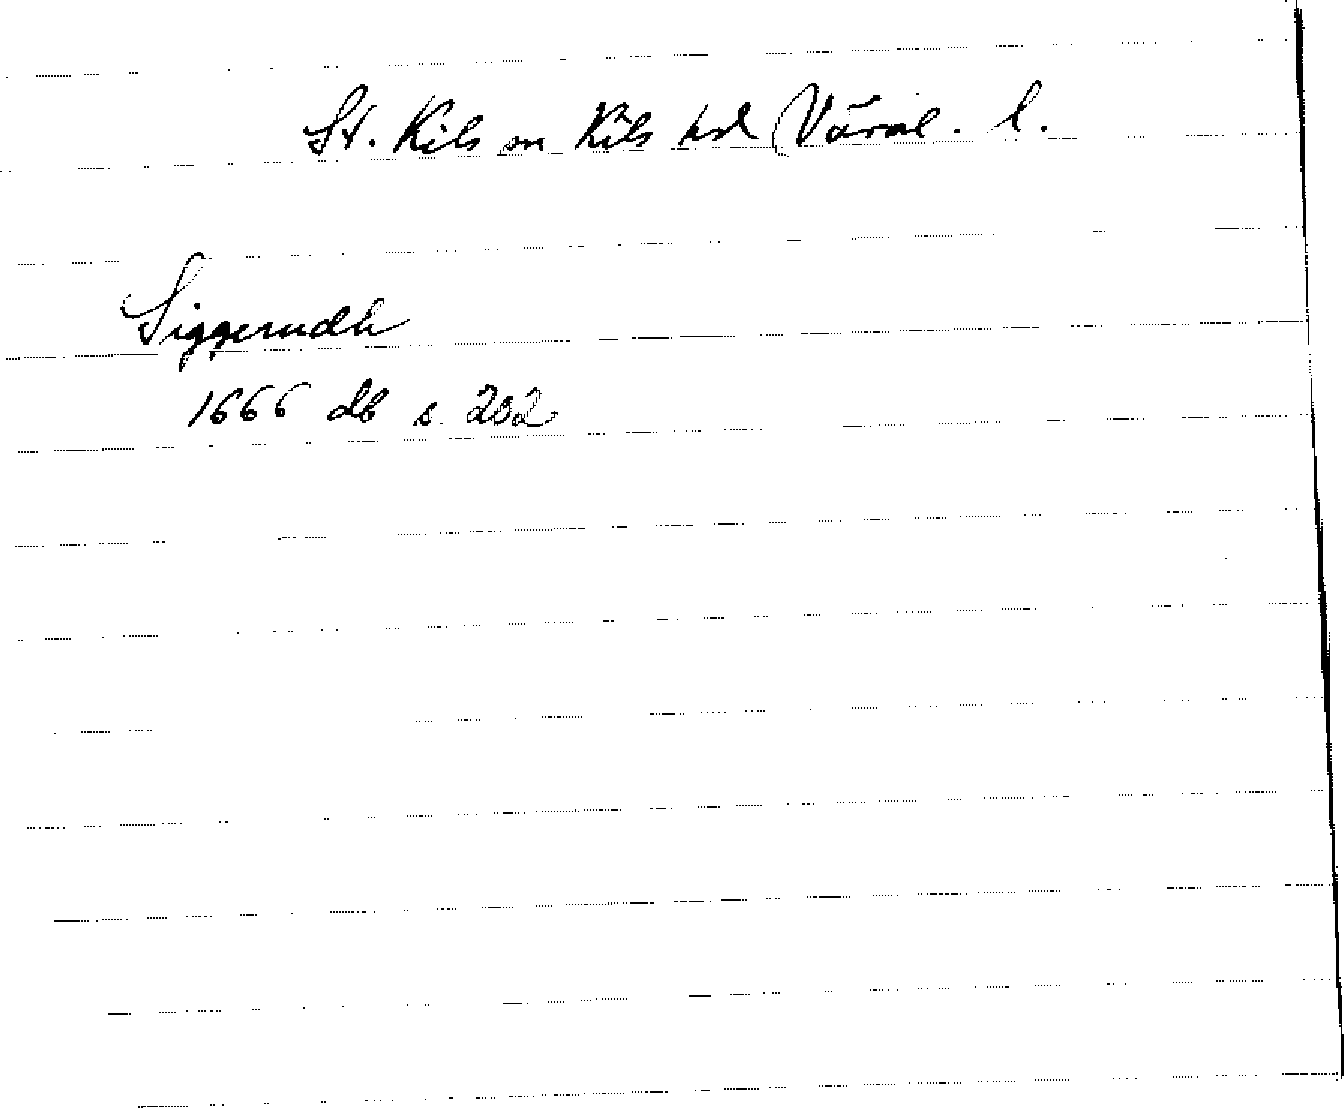 St. Kils sn Kils hd Värml. l.
Siggerudh
1666 db s. 202